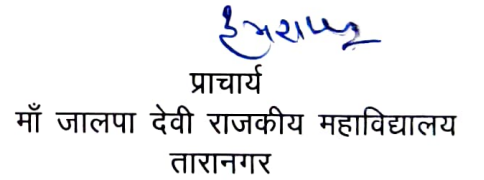 प्राचार्य
माँ जालपा देवी राजकीय महाविद्यालय
तारानगर